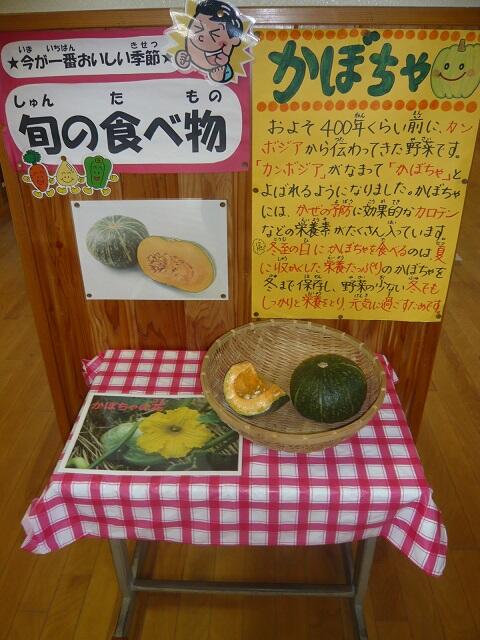 ★今が一番おいしい季節★
いま いちばん きせつ
旬の食べ物
しゅん た もの
かぼちゃ
およそ400年くらい前に、カン
ボジアから伝わってきた野菜です。
「カンボジア」がなまって「かぼちゃ」と
よばれるようになりました。かぼちゃ
には、かぜの予防に効果的なカロテン
などの栄養素がたくさん入っています。
冬至の日にかぼちゃを食べるのは、夏
に収かくした栄養たっぷりのかぼちゃを
冬まで保存し、野菜の少ない冬でも
しっかりと栄養をとり、元気に過ごすためです。
かぼちゃの花